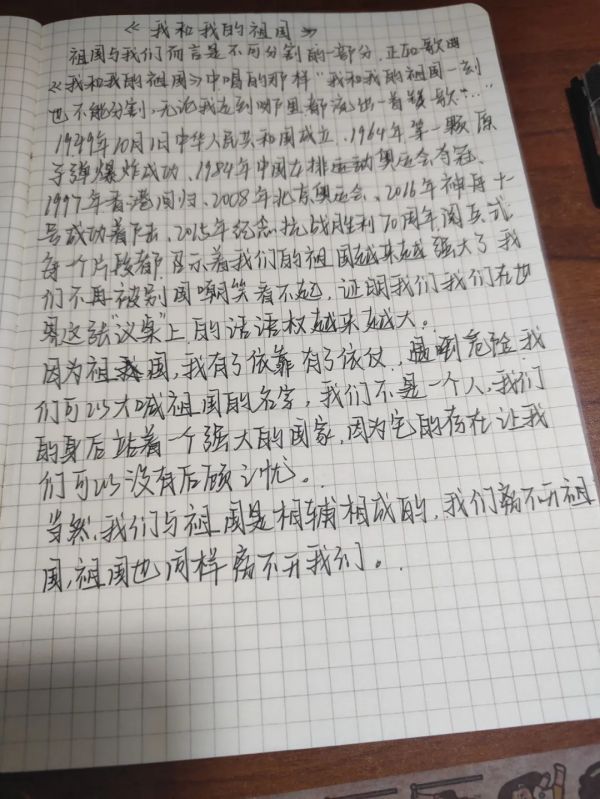 《我和我的祖国》
祖国与我们而言是不可分割的一部分，正如歌曲
《我和我的祖国》中唱的那样"我和我的祖国一刻
也不能分割，无论我走到哪里都流出一首赞歌"…"
1949年10月1日中华人民共和国成立、1964年第一颗原
子弹爆炸成功、1984年中国女排运动奥运会夺冠、
1997年香港回归、2008年北京奥运会、2016年神舟十一
号成功着陆、2015年纪念抗战胜利70周年阅兵式
每一个片段都昭示着我们的祖国越来越强大了我
们不再被别国嘲笑看不起，证明我们我们在世
界这张"议桌"上的话语权越来越大。
因为祖国，我有了依靠有了依仗，遇到危险我
们可以大喊祖国的名字，我们不是一个人，我们
的身后站着一个强大的国家，因为它的存在让我
们可以没有后顾之忧。
当然，我们与祖国是相辅相成的，我们离不开祖
国，祖国也同样离不开我们。